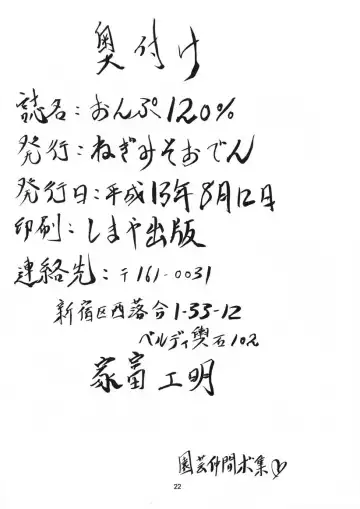 奥付け
誌名：おんぷ120%
発行：ねぎみそおでん
発行日：平成13年8月12日
印刷：しまや出版
連絡先：〒161-0031
新宿区西落合1-33-12
ベルディ輿石102
家富工明
園芸仲間ボ集♡
22